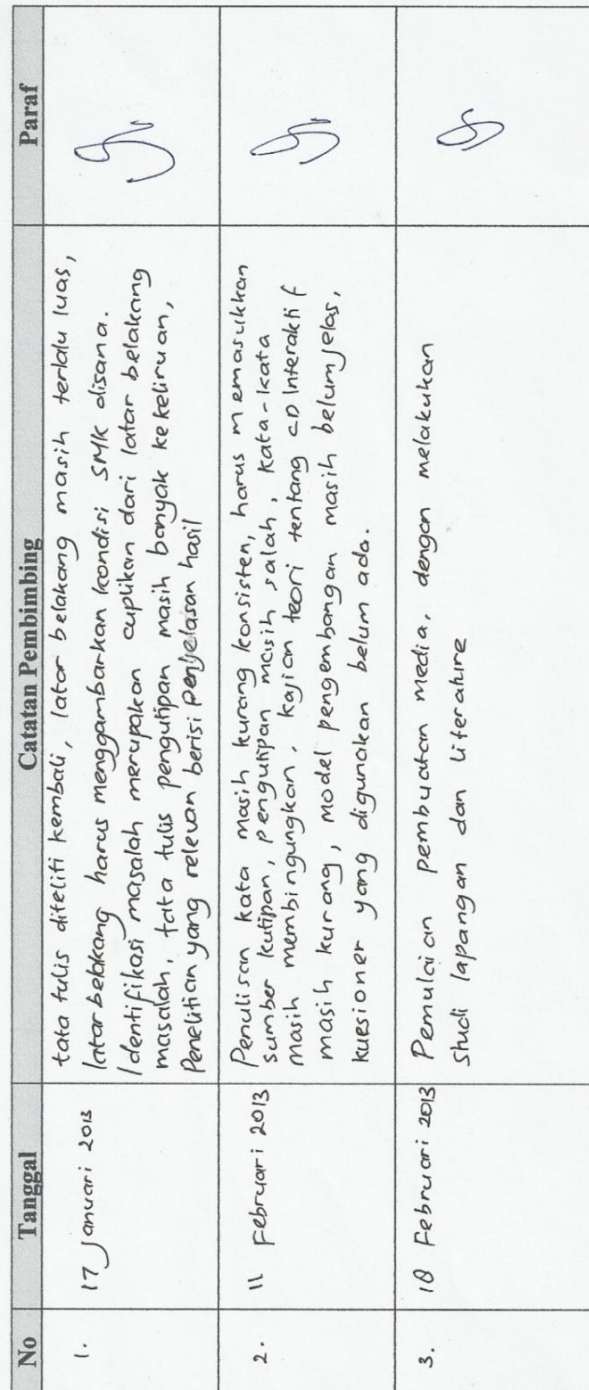 No Tanggal Catatan Pembimbing Paraf
1. 17 Januari 2013 tata tulis diteliti kembali, latar belakang masih terlalu luas,
latar belakang harus menggambarkan kondisi SMK disana.
Identifikasi masalah merupakan cuplikan dari latar belakang
masalah, tata tulis pengutipan masih banyak kekeliruan,
Penelitian yang relevan berisi penjelasan hasil
2. 11 Februari 2013 Penulisan kata masih kurang konsisten, harus memasukkan
sumber kutipan, pengutipan masih salah, kata-kata
masih membingungkan, kajian teori tentang CD Interaktif
masih kurang, model pengembangan masih belum jelas,
kuesioner yang digunakan belum ada.
3. 18 Februari 2013 Pemulaian pembuatan media, dengan melakukan
Studi lapangan dan Literature